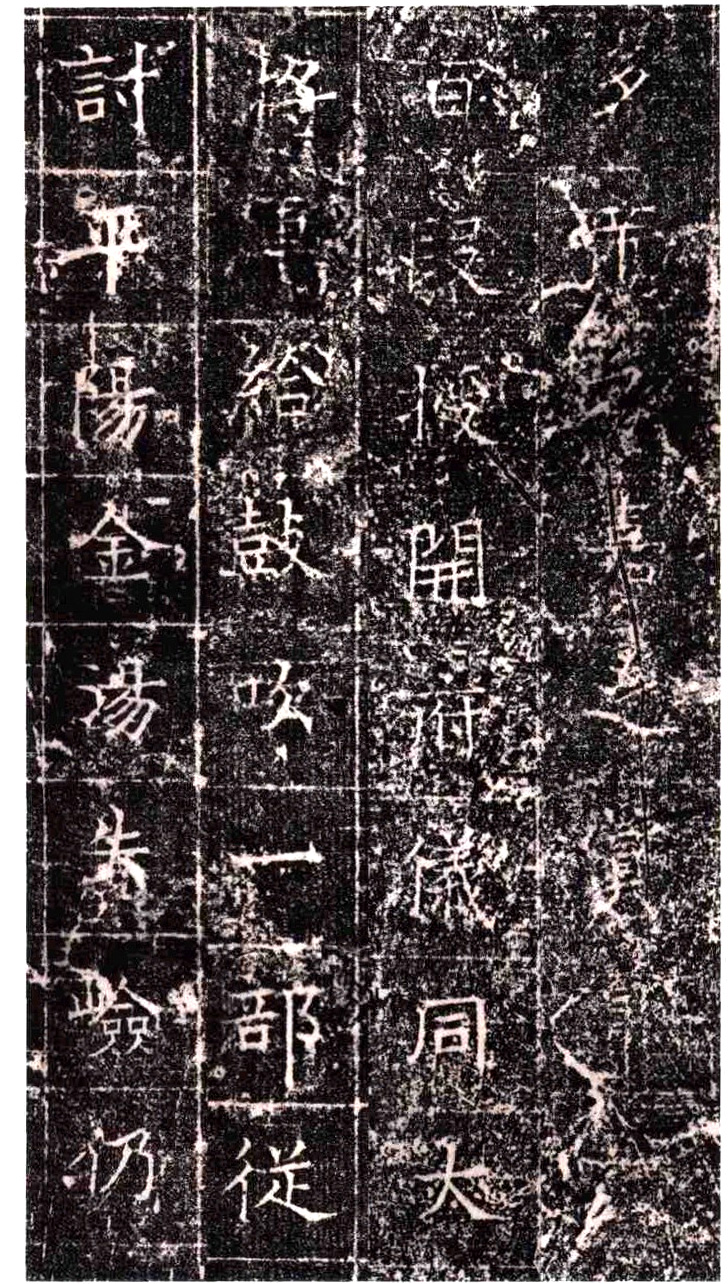 多 嘉
百段授開府儀同大
將軍給鼓吹一部從
討平陽金湯失險仍